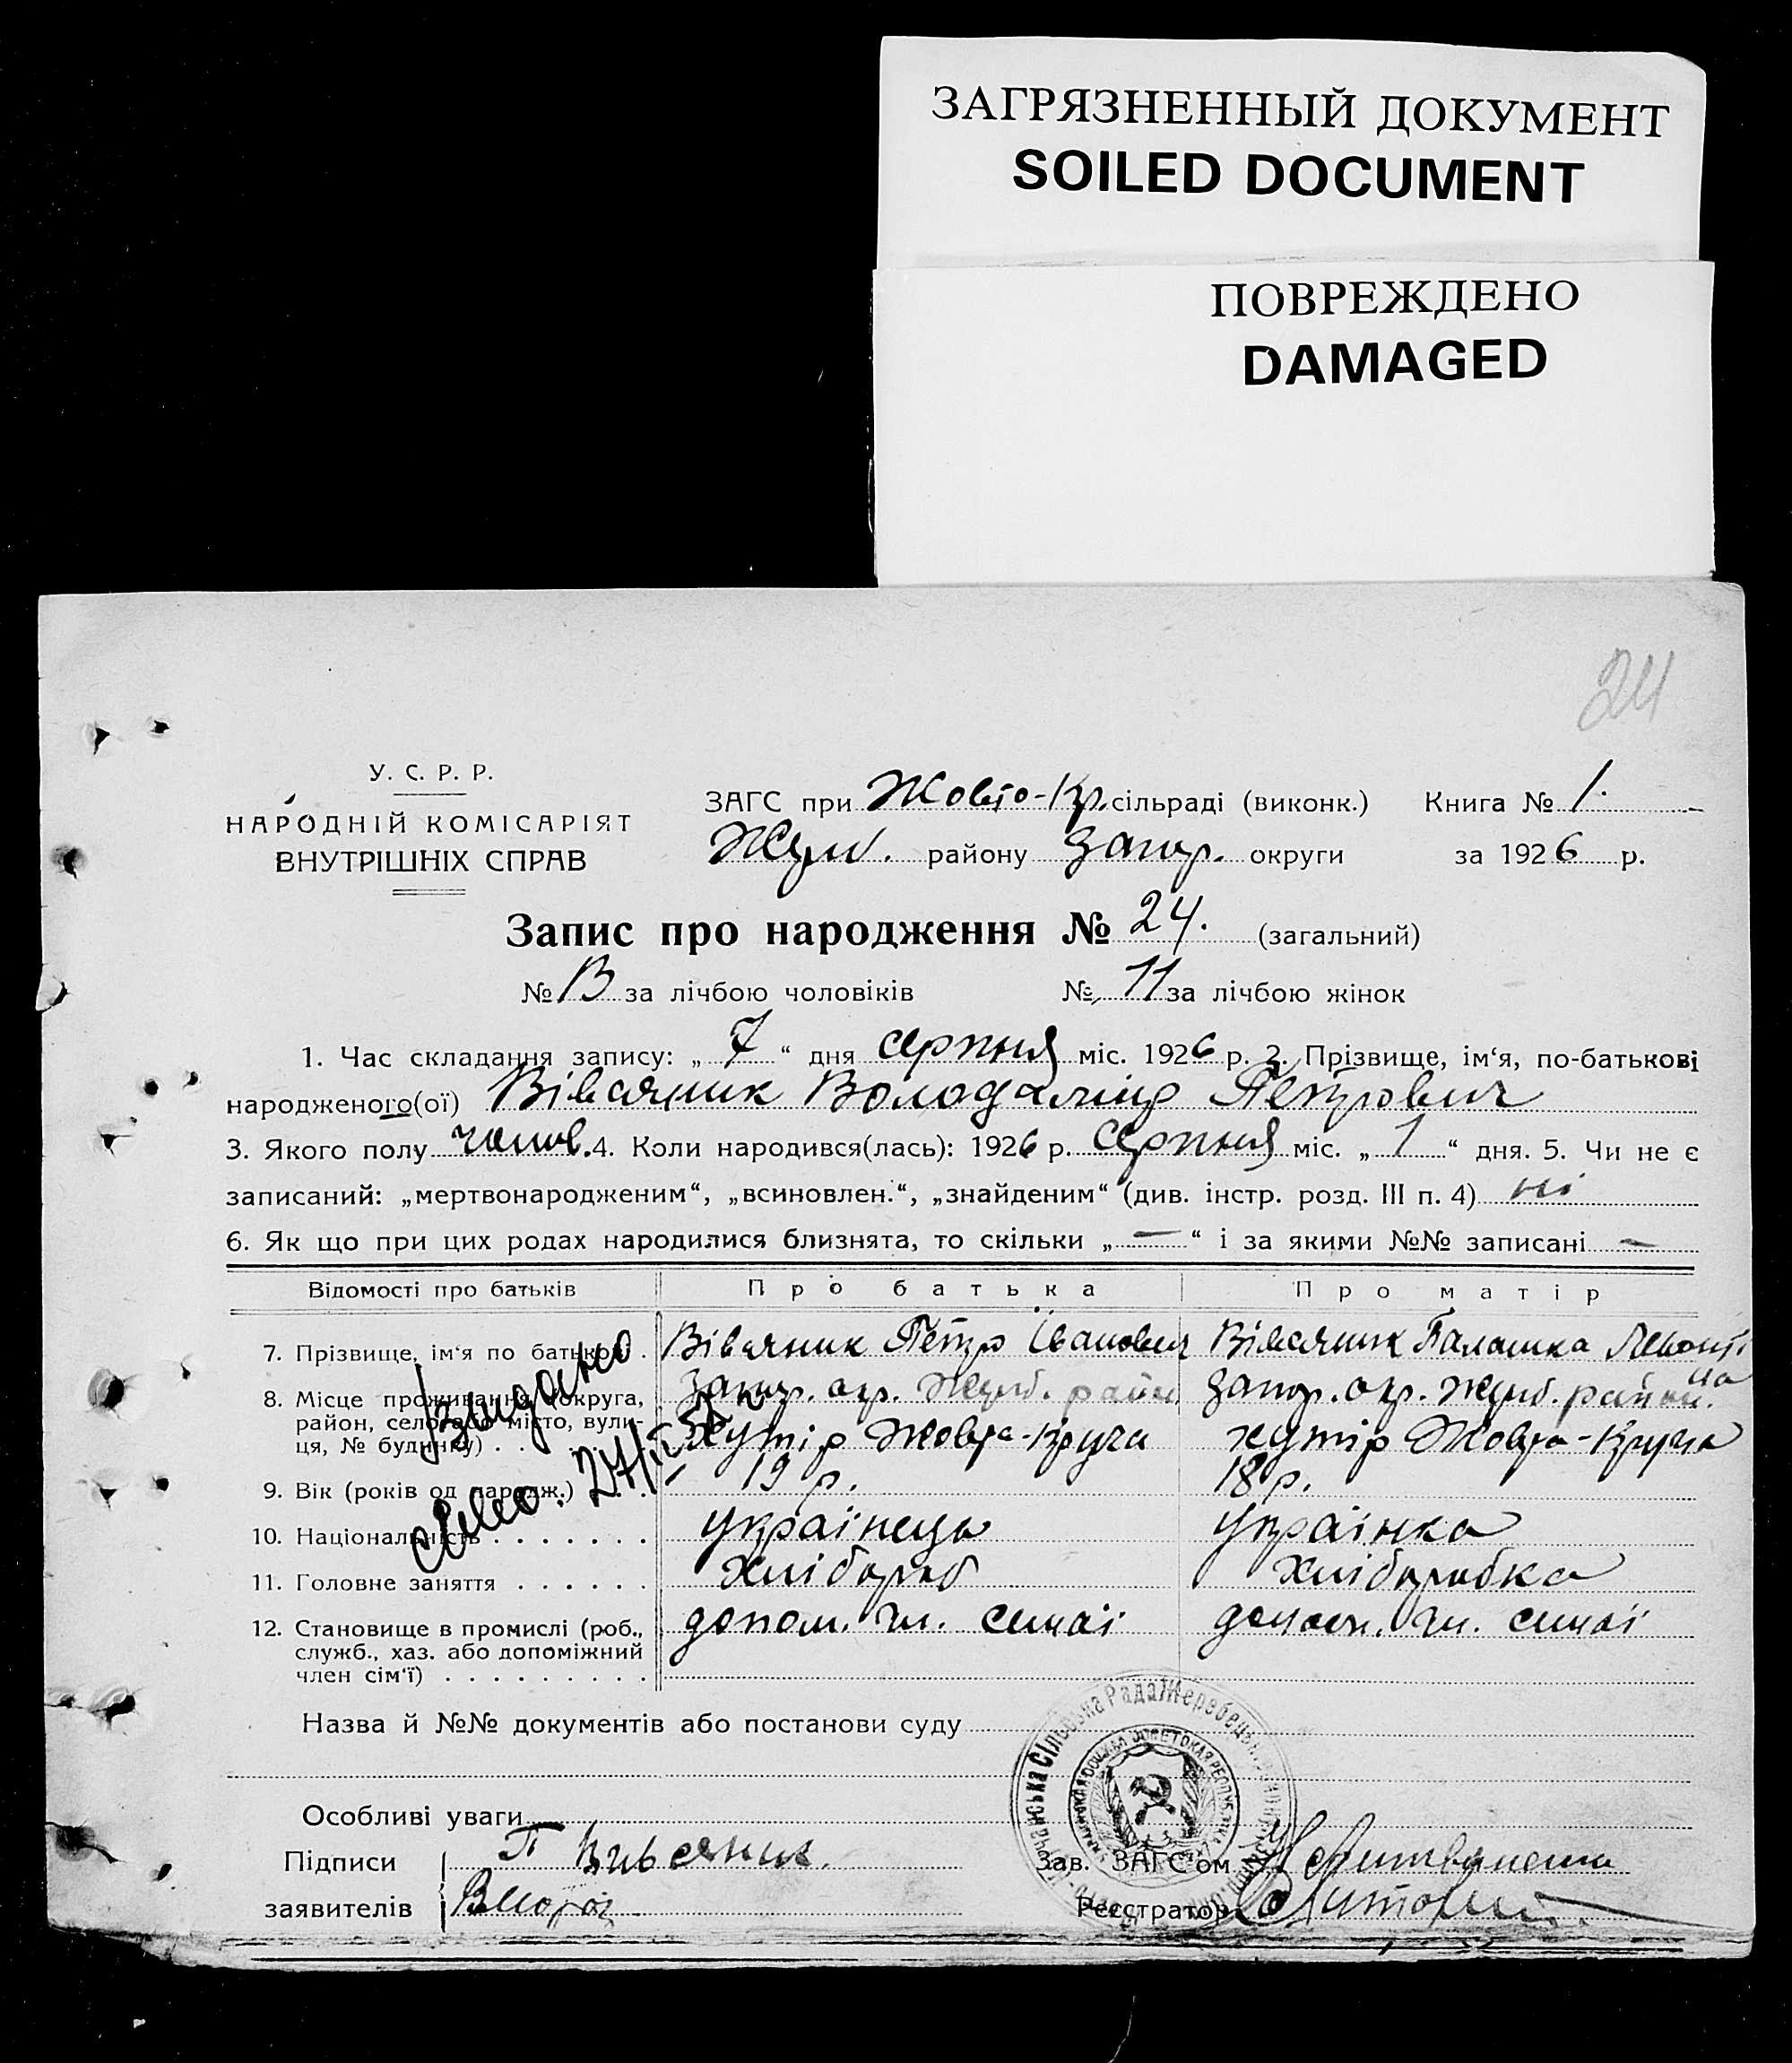 ЗАГРЯЗНЕННЫЙ ДОКУМЕНТ
SOILED DOCUMENT
ПОВРЕЖДЕНО
DAMAGED
24
У. С. Р. Р.
НАРОДНІЙ КОМІСАРІЯТ
ВНУТРІШНІХ СПРАВ
ЗАГС при Жовто-Кр. сільраді (виконк.) Книга № 1.
району Запор. округи за 1926 р.
Запис про народження № 24. (загальний)
№ 13 за лічбою чоловіків № 11 за лічбою жінок
1. Час складання запису: „ 7 “ дня серпня міс. 1926 р. 2. Прізвище, ім‘я, по-батькові
народженого(ої) Вівсяник Володамир Петрович
3. Якого полу чолов. 4. Коли народився(лась): 1926 р. серпня міс. „ 1 “ дня. 5. Чи не є
записаний: „мертвонародженим“, „всиновлен.“, „знайденим“ (див. інстр. розд. III п. 4) ні
6. Як що при цих родах народилися близнята, то скільки „ — “ і за якими №№ записані —
Відомості про батьків Про батька Про матір
7. Прізвище, ім‘я по батькові . Вівсяник Петро Іванович Вівсяник Палашка
8. Місце проживання (округа, Запор. окр. Жереб. район Запор. окр. Жереб. район.
район, село або місто, вули- хутір Жовта-Круча хутір Жовта-Круча
ця, № будинку)
9. Вік (років од народж.) 19 р. 18 р.
10. Національність українець українка
11. Головне заняття хлібороб хліборобка
12. Становище в промислі (роб., допом. чл. сімаї допом. чл. сімаї
служб., хаз. або допоміжний
член сім‘ї)
Видано
27/
Назва й №№ документів або постанови суду
Особливі уваги
Підписи П Вивсяник.
заявителів Вмороз
Зав. ЗАГС‘ом
Реєстратор